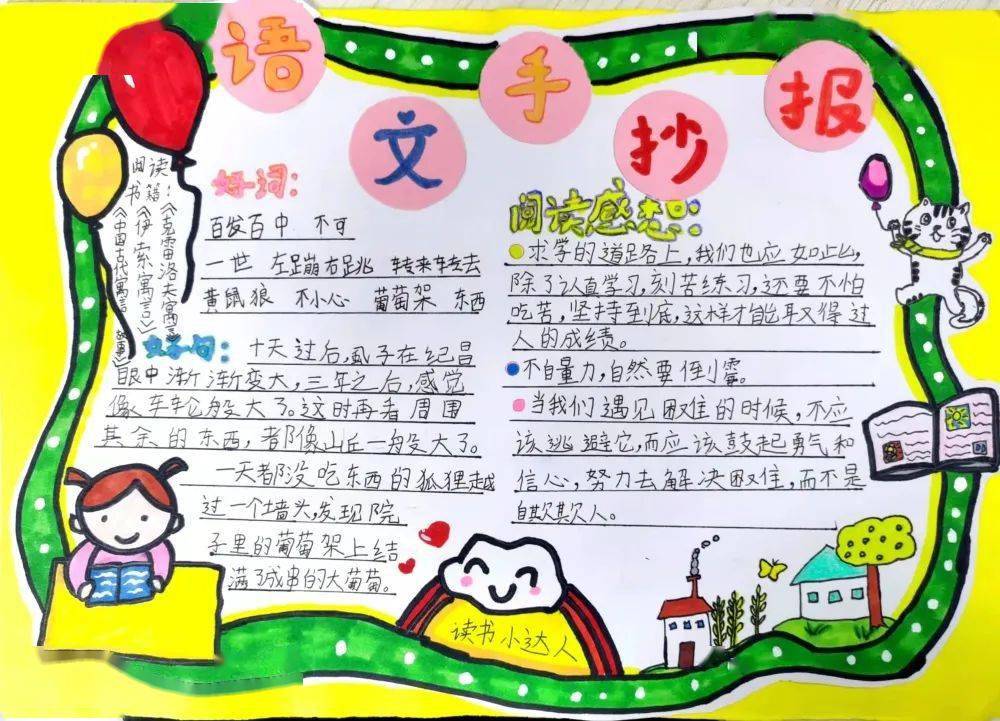 语文手抄报
阅读
书籍：
《克雷洛夫寓言》
《伊索寓言》
《中国古代寓言故事》
好词：
百发百中 不可
一世 左蹦右跳 转来转去
黄鼠狼 不小心 葡萄架 东西
好句：
十天过后，虱子在纪昌
眼中渐渐变大，三年之后，感觉
像车轮般大了。这时再看周围
其余的东西，都像山丘一般大了。
一天都没吃东西的狐狸越
过一个墙头，发现院
子里的葡萄架上结
满了成串的大葡萄。
阅读感想：
求学的道路上，我们也应如此，
除了认真学习，刻苦练习，还要不怕
吃苦，坚持到底，这样才能取得过
人的成绩。
不自量力，自然要倒霉。
当我们遇见困难的时候，不应
该逃避它，而应该鼓起勇气和
信心，努力去解决困难，而不是
自欺欺人。
读书小达人